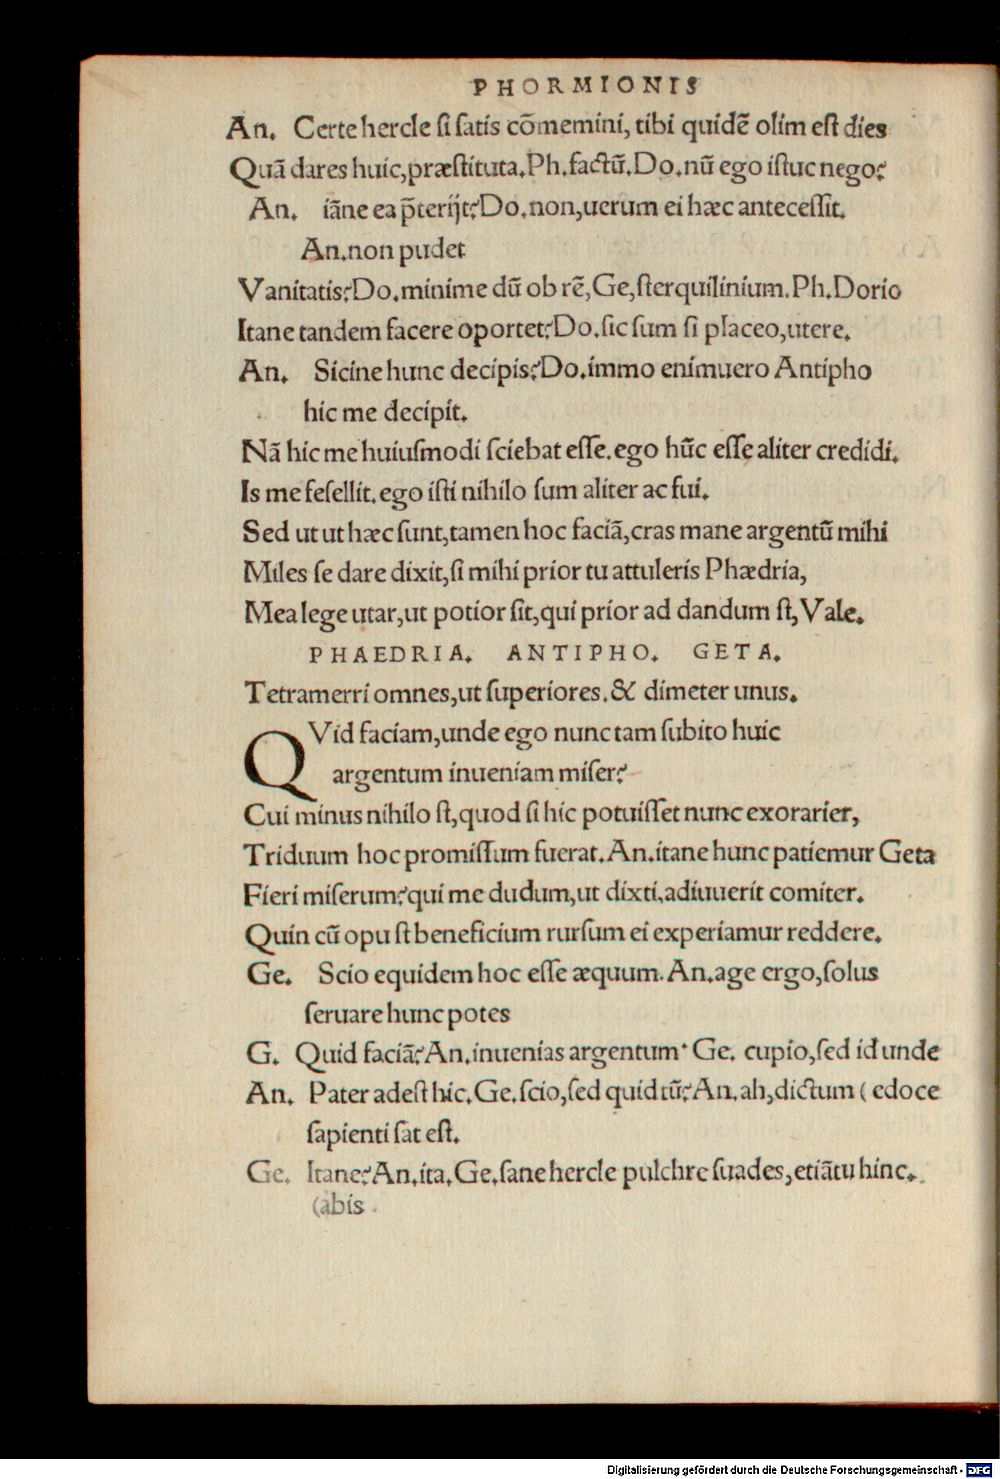 PHORMIONIS
An. Certe hercle ſi ſatis cõmemini, tibi quidẽ olim eſt dies
Quã dares huic, præſtituta. Ph. factũ. Do. nũ ego iſtuc nego?
An. iãne ea p̃terijt? Do. non, uerum ei hæc anteceſſit.
An. non pudet
Vanitatis? Do. minime dũ ob rẽ, Ge, ſterquilinium. Ph. Dorio
Itane tandem facere oportet? Do. ſic ſum ſi placeo, utere.
An. Sicine hunc decipis? Do. immo enimuero Antipho
hic me decipit.
Nã hic me huiuſmodi ſciebat eſſe. ego hũc eſſe aliter credidi.
Is me fefellit. ego iſti nihilo ſum aliter ac fui.
Sed ut ut hæc ſunt, tamen hoc faciã, cras mane argentũ mihi
Miles ſe dare dixit, ſi mihi prior tu attuleris Phædria,
Mea lege utar, ut potior ſit, qui prior ad dandum ſt, Vale.
PHAEDRIA. ANTIPHO. GETA.
Tetramerri omnes, ut ſuperiores. & dimeter unus.
QVid faciam, unde ego nunc tam ſubito huic
argentum inueniam miſer?
Cui minus nihilo ſt, quod ſi hic potuiſſet nunc exorarier,
Triduum hoc promiſſum fuerat. An. itane hunc patiemur Geta
Fieri miſerum? qui me dudum, ut dixti, adiuuerit comiter.
Quin cũ opu ſt beneficium rurſum ei experiamur reddere.
Ge. Scio equidem hoc eſſe æquum. An. age ergo, ſolus
ſeruare hunc potes
G. Quid faciã? An. inuenias argentum. Ge. cupio, ſed id unde
An. Pater adeſt hic. Ge. ſcio, ſed quid tũ? An. ah, dictum ( edoce
ſapienti ſat eſt.
Ge. Itane? An. ita. Ge. ſane hercle pulchre ſuades, etiã tu hinc.
(abis
Digitalisierung gefördert durch die Deutsche Forschungsgemeinschaft - DFG